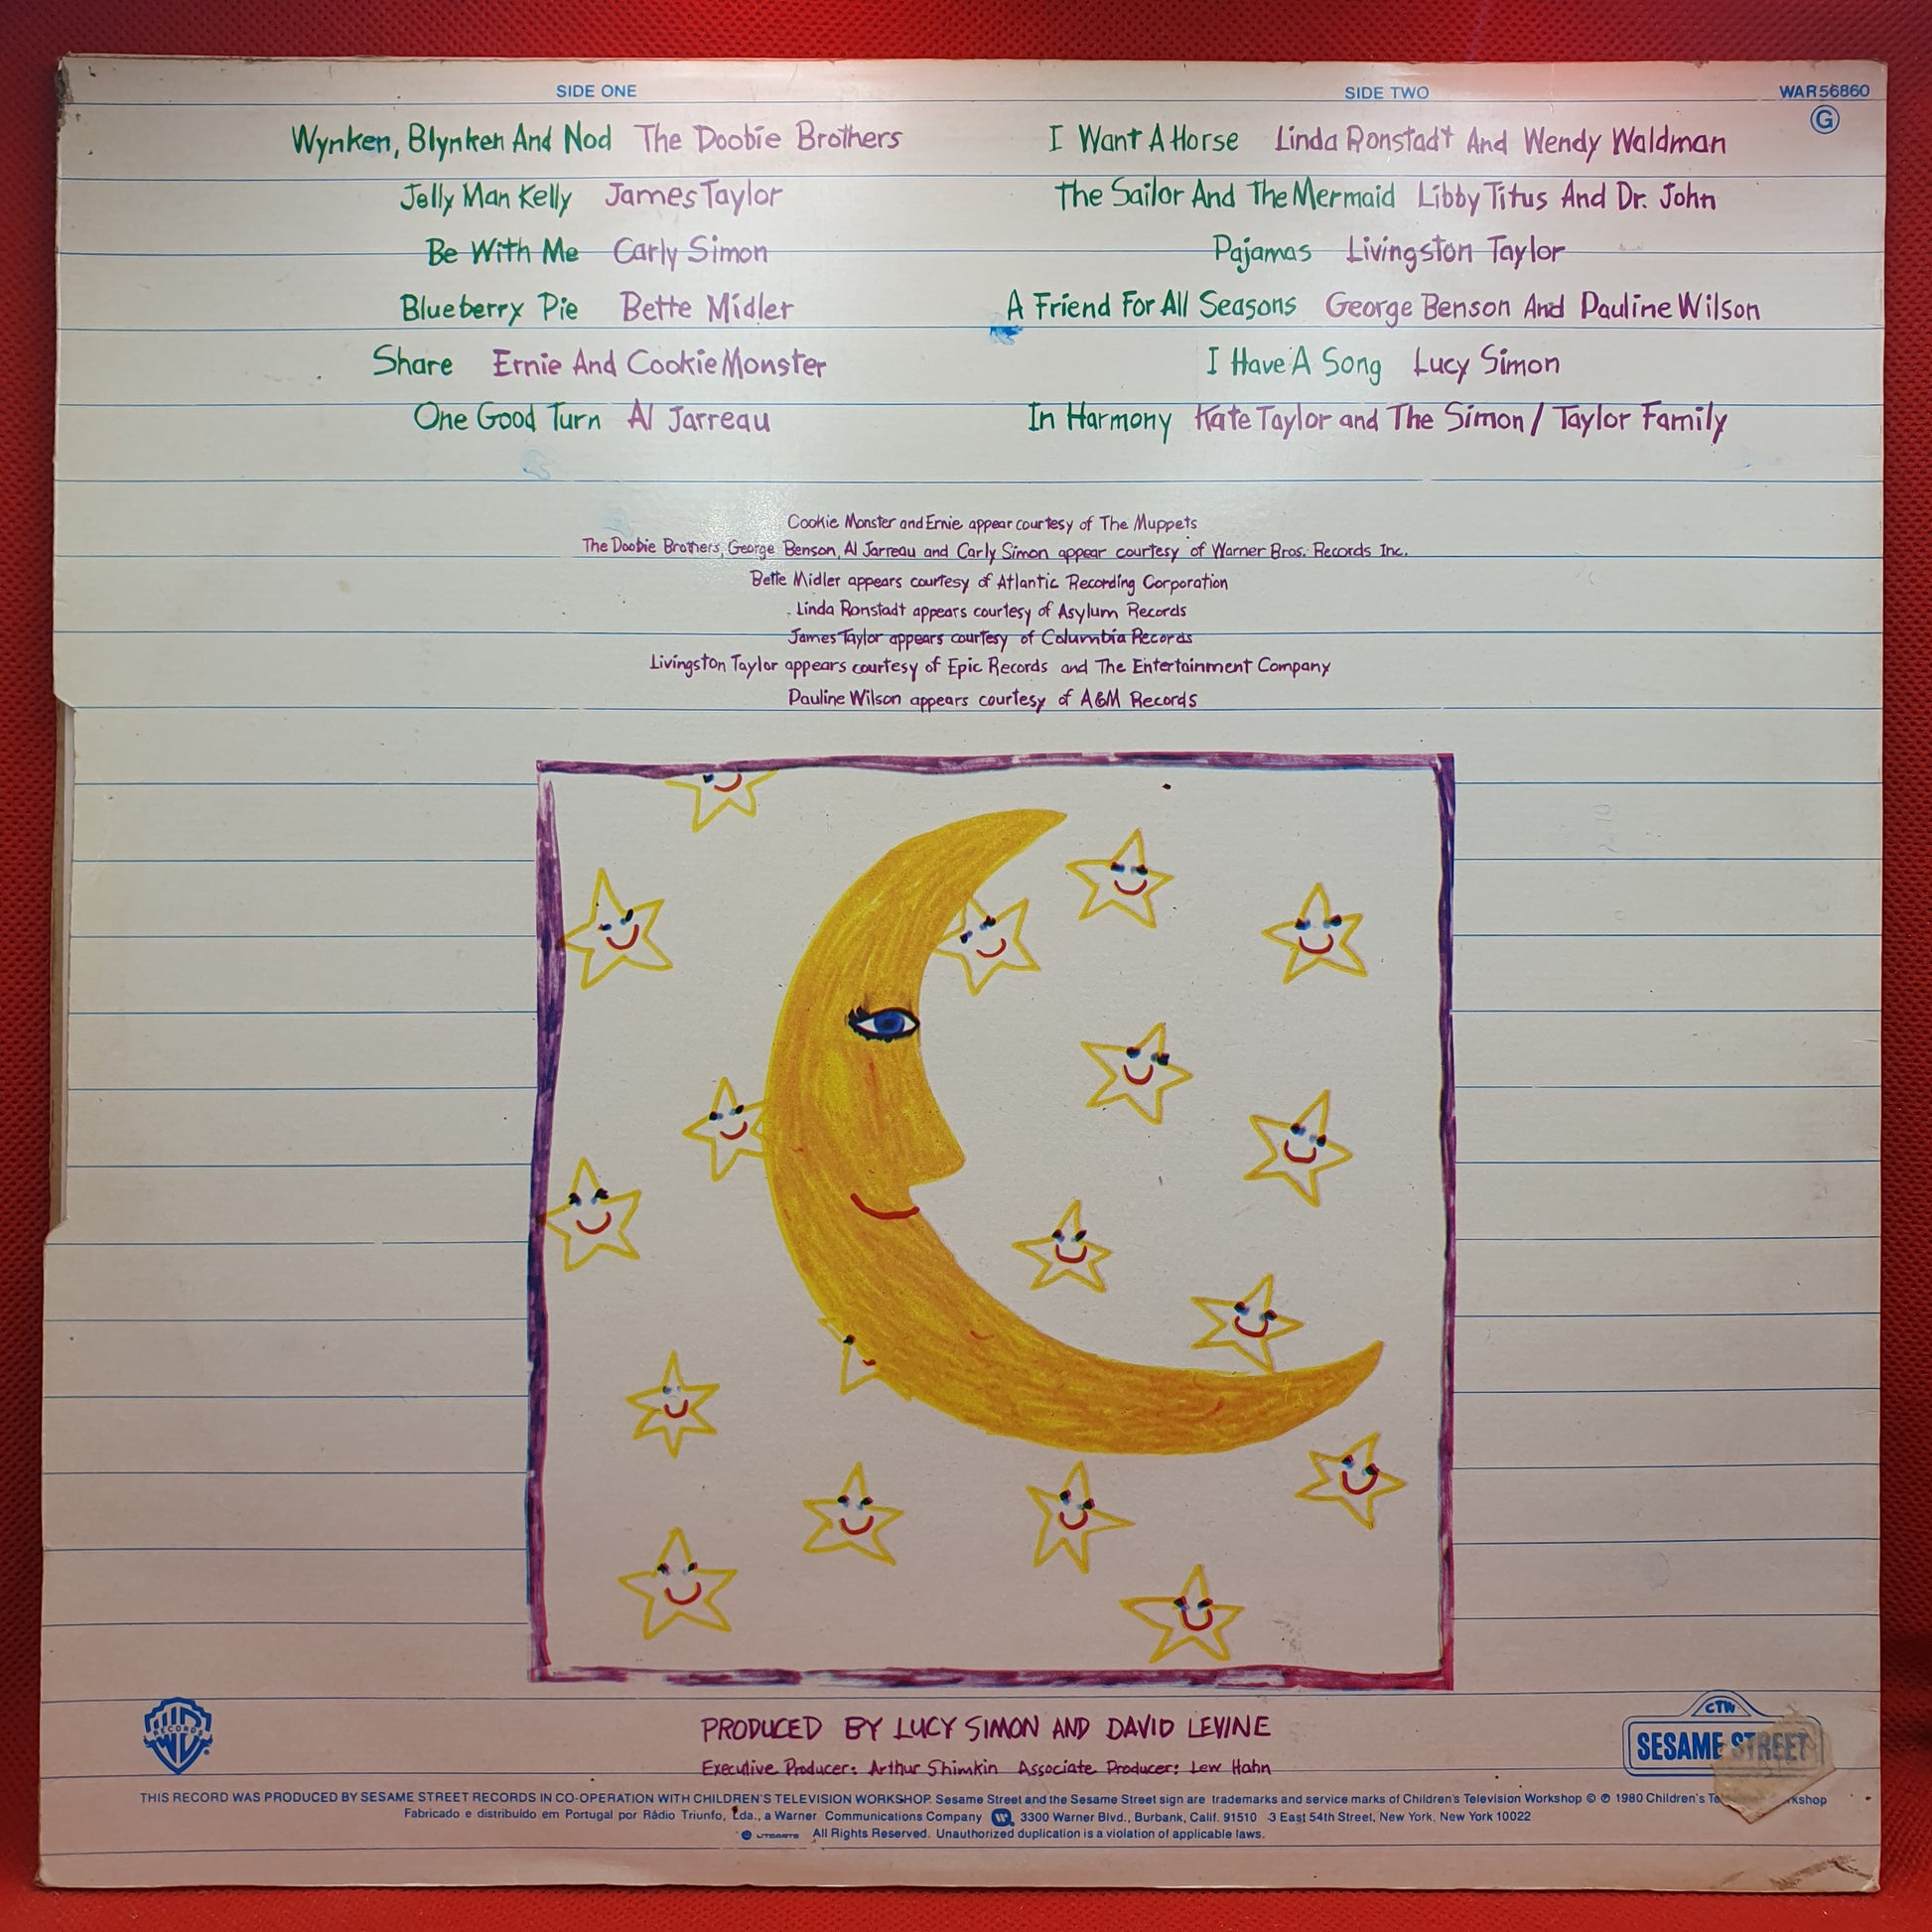 SIDE ONE
Wynken, Blynken And Nod The Doobie Brothers
Jelly Man Kelly James Taylor
Be With Me Carly Simon
Blueberry Pie Bette Midler
Share Ernie And Cookie Monster
One Good Turn Al Jarreau
SIDE TWO
WAR 56860
G
I Want A Horse Linda Ronstadt And Wendy Waldman
The Sailor And The Mermaid Libby Titus And Dr. John
Pajamas Livingston Taylor
A Friend For All Seasons George Benson And Pauline Wilson
I Have A Song Lucy Simon
In Harmony Kate Taylor and The Simon / Taylor Family
Cookie Monster and Ernie appear courtesy of The Muppets
The Doobie Brothers, George Benson, Al Jarreau and Carly Simon appear courtesy of Warner Bros. Records Inc.
Bette Midler appears courtesy of Atlantic Recording Corporation
Linda Ronstadt appears courtesy of Asylum Records
James Taylor appears courtesy of Columbia Records
Livingston Taylor appears courtesy of Epic Records and The Entertainment Company
Pauline Wilson appears courtesy of A&M Records
RECORDS
PRODUCED BY LUCY SIMON AND DAVID LEVINE
Executive Producer: Arthur Shimkin Associate Producer: Lew Hahn
CTW
SESAME STREET
THIS RECORD WAS PRODUCED BY SESAME STREET RECORDS IN CO-OPERATION WITH CHILDREN'S TELEVISION WORKSHOP. Sesame Street and the Sesame Street sign are trademarks and service marks of Children's Television Workshop © ℗ 1980 Children's
Fabricado e distribuído em Portugal por Rádio Triunfo, Lda., a Warner Communications Company 3300 Warner Blvd., Burbank, Calif. 91510 - 3 East 54th Street, New York, New York 10022
All Rights Reserved. Unauthorized duplication is a violation of applicable laws.